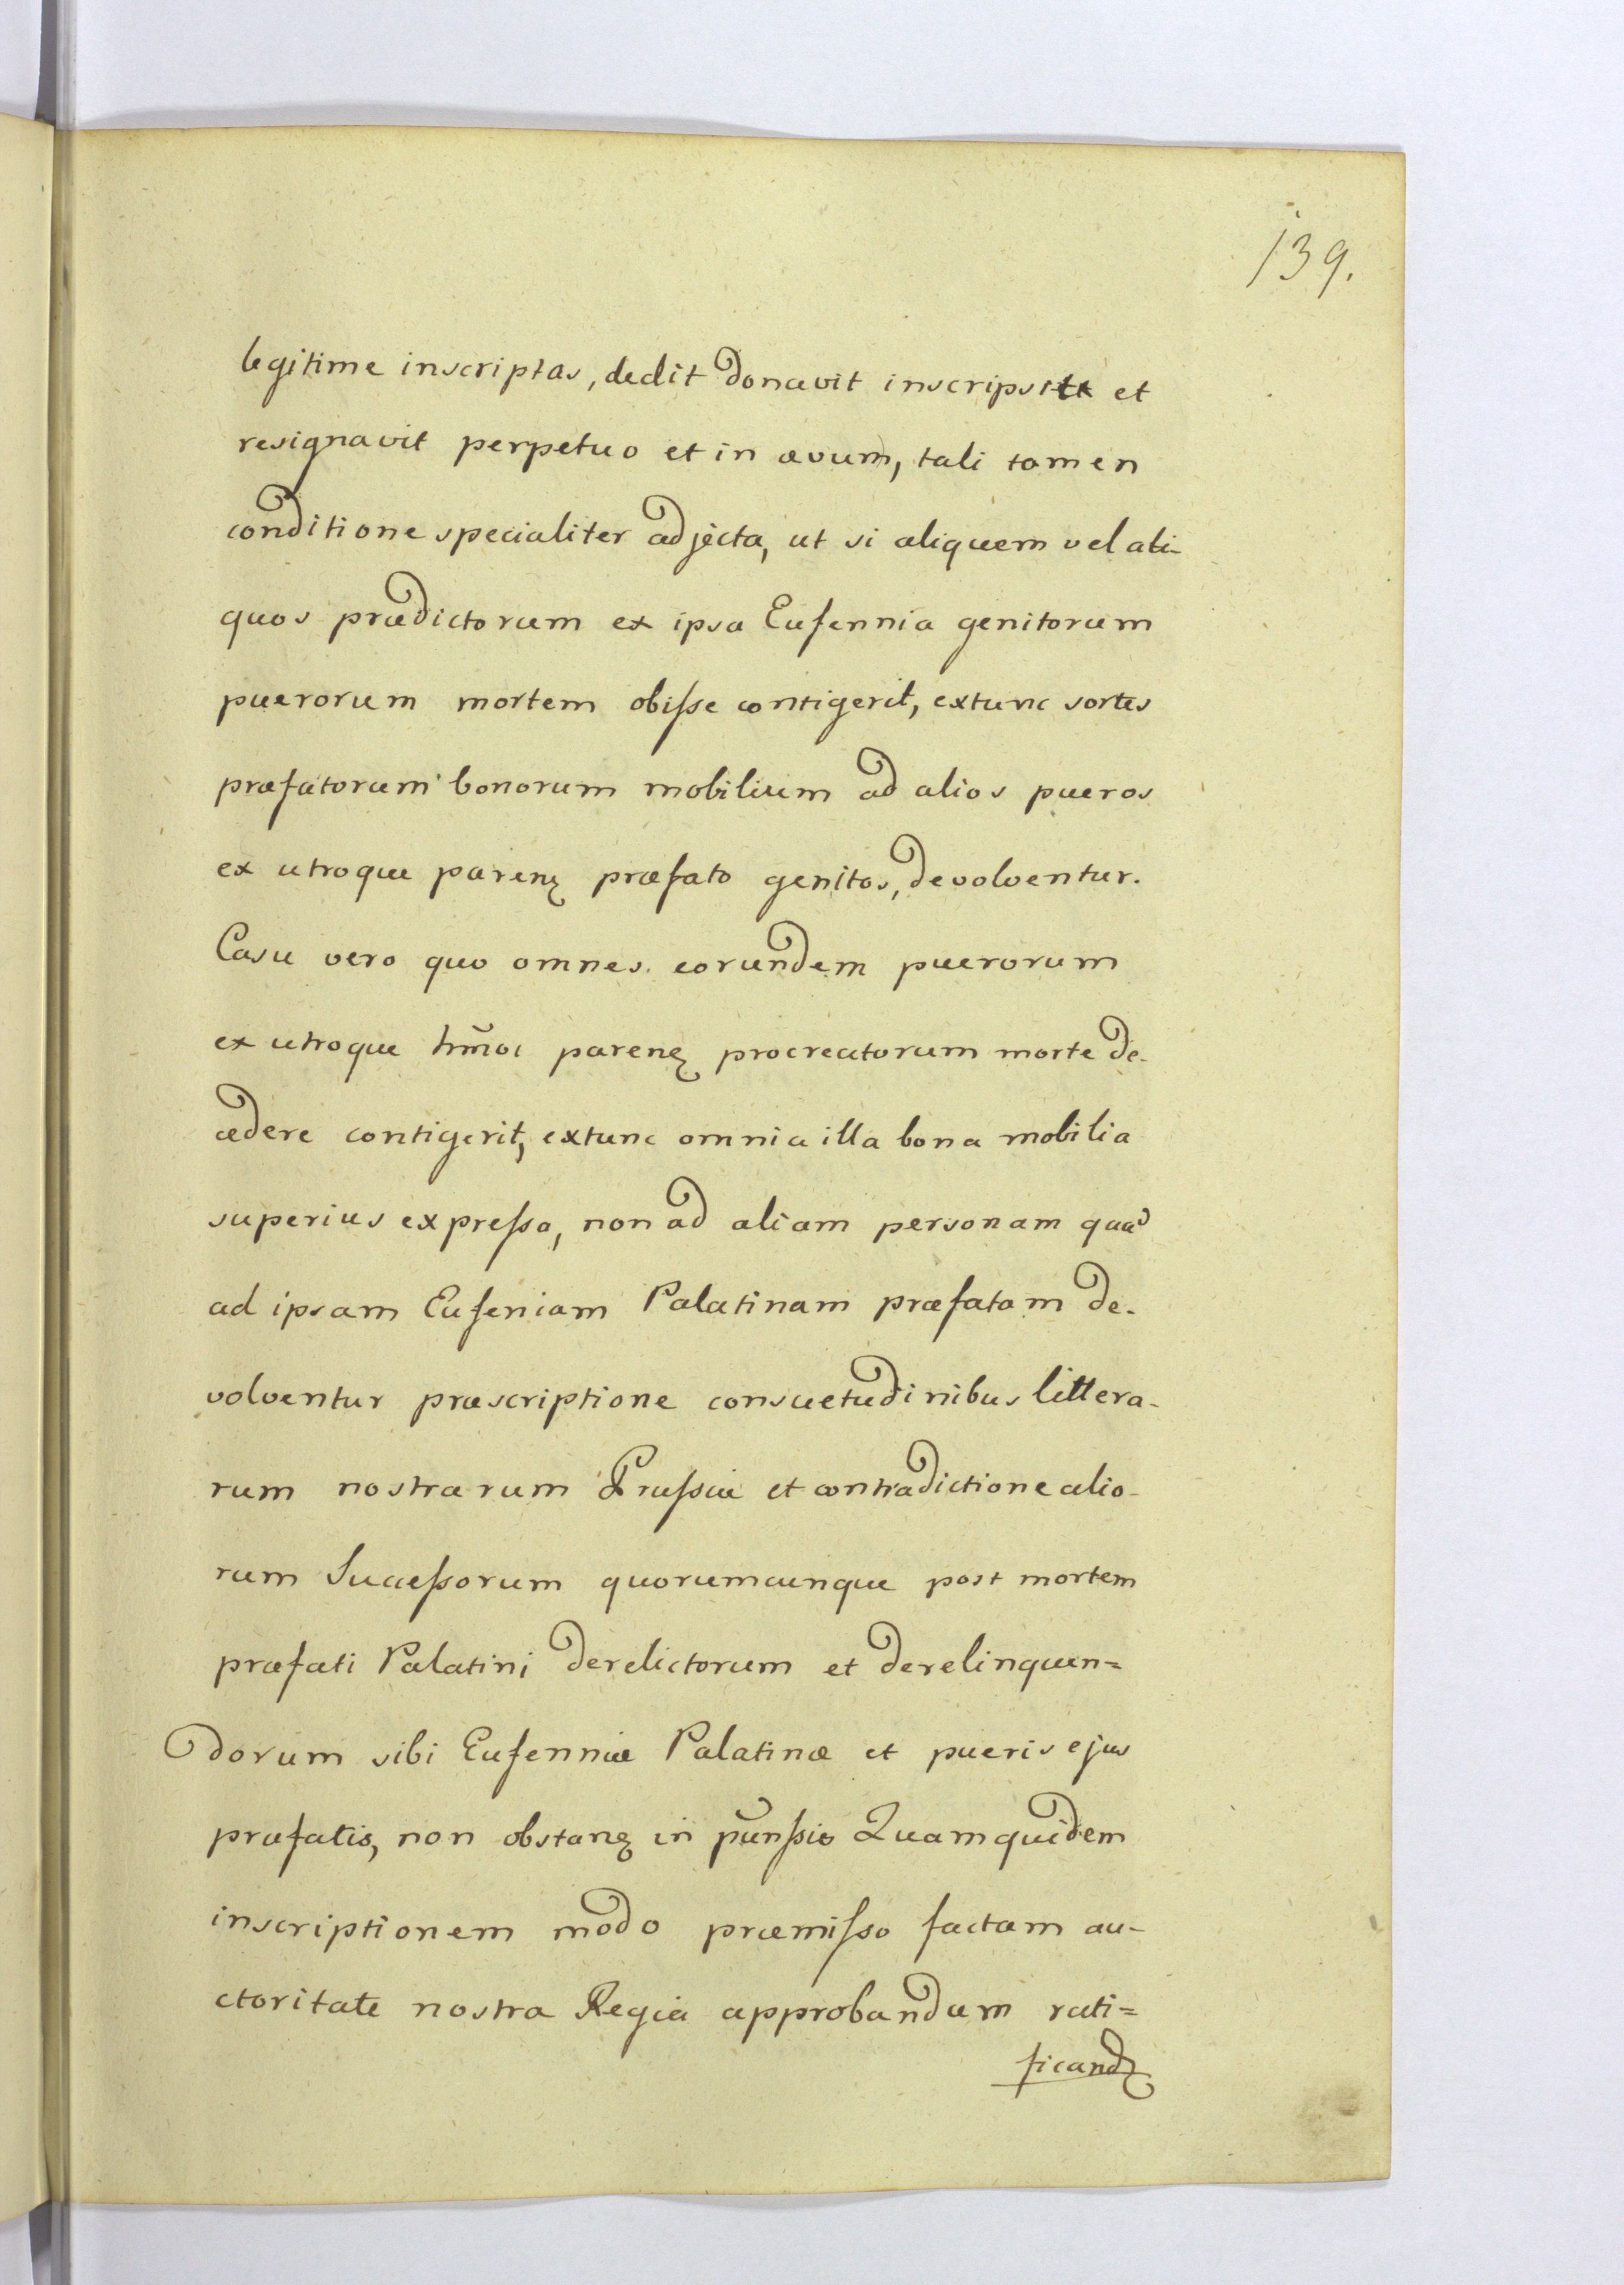 139.
legitime inscriptas, dedit donavit inscripsit et
resignavit perpetuo et in ævum, tali tamen
conditione specialiter adjecta, ut si aliquem vel ali-
quos prædictorum ex ipsa Eufennia genitorum
puerorum mortem obiſse contigerit, extunc sortes
præfatorum bonorum mobilium ad alios pueros
ex utroque parenꝫ præfato genitos, devolventur.
Casu vero quo omnes eorundem puerorum
ex utroque hm̃oi parenꝫ procreatorum morte de-
cedere contigerit, extunc omnia illa bona mobilia
superius expreſsa, non ad aliam personam quã
ad ipsam Eufeniam Palatinam præfatam de-
volventur præscriptione consuetudinibus littera-
rum nostrarum Pruſsiæ et contradictione alio-
rum Succeſsorum quorumcunque post mortem
præfati Palatini derelictorum et derelinquen=
dorum sibi Eufenniæ Palatinæ et pueris ejus
præfatis, non obstanꝫ in Quamquidem
inscriptionem modo præmiſso factam au-
ctoritate nostra Regia approbandam rati=
ficandꝫ